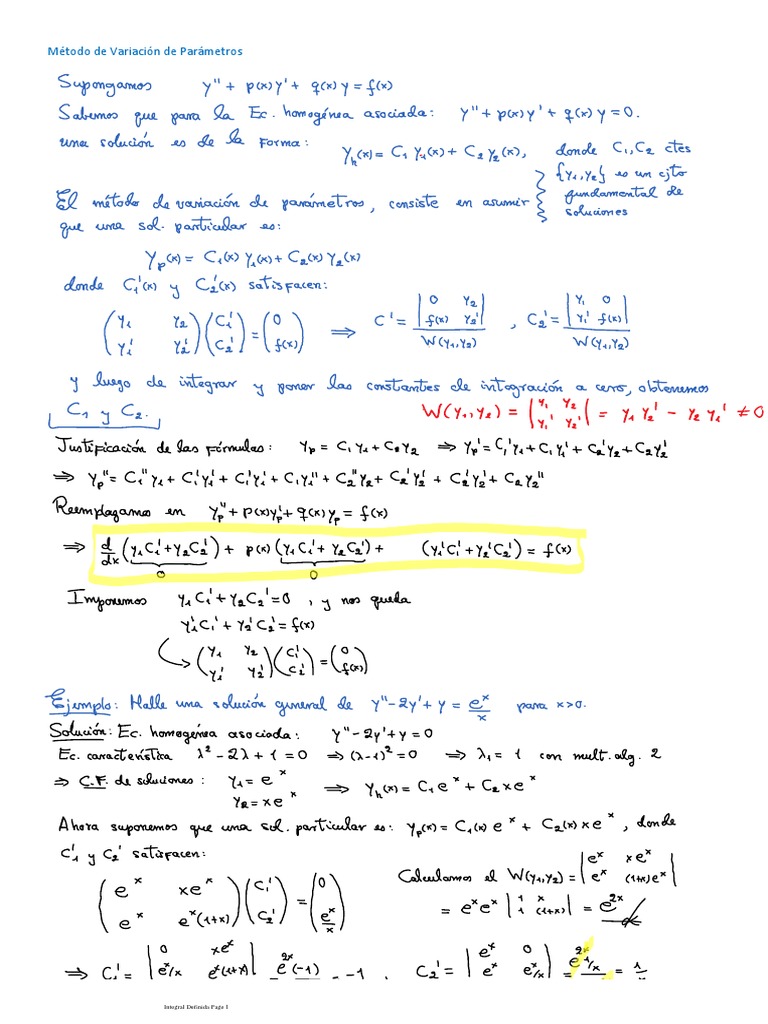 Método de Variación de Parámetros
Supongamos y'' + p(x) y' + q(x) y = f(x)
Sabemos que para la Ec. homogénea asociada: y'' + p(x) y' + q(x) y = 0.
una solución es de la forma: Y_h(x) = C_1 Y_1(x) + C_2 Y_2(x), donde C_1, C_2 ctes
{Y_1, Y_2} es un cjto
fundamental de
soluciones
El método de variación de parámetros, consiste en asumir
que una sol. particular es:
Y_p(x) = C_1(x) Y_1(x) + C_2(x) Y_2(x)
donde C_1'(x) y C_2'(x) satisfacen:
(Y_1 Y_2; Y_1' Y_2')(C_1'; C_2') = (0; f(x)) ⟹ C' = |0 Y_2; f(x) Y_2'| / W(Y_1,Y_2) , C_2' = |Y_1 0; Y_1' f(x)| / W(Y_1,Y_2)
y luego de integrar y poner las constantes de integración a cero, obtenemos
C_1 y C_2. W(Y_1, Y_2) = |Y_1 Y_2; Y_1' Y_2'| = Y_1 Y_2' - Y_2 Y_1' ≠ 0
Justificación de las fórmulas: Y_p = C_1 Y_1 + C_2 Y_2 ⟹ Y_p' = C_1' Y_1 + C_1 Y_1' + C_2' Y_2 + C_2 Y_2'
⟹ Y_p'' = C_1'' Y_1 + C_1' Y_1' + C_1' Y_1' + C_1 Y_1'' + C_2'' Y_2 + C_2' Y_2' + C_2' Y_2' + C_2 Y_2''
Reemplazamos en Y_p'' + p(x) Y_p' + q(x) Y_p = f(x)
⟹ d/dx (Y_1 C_1' + Y_2 C_2') + p(x) (Y_1 C_1' + Y_2 C_2') + (Y_1' C_1' + Y_2' C_2') = f(x)
0 0
Imponemos Y_1 C_1' + Y_2 C_2' = 0 , y nos queda
Y_1' C_1' + Y_2' C_2' = f(x)
(Y_1 Y_2; Y_1' Y_2')(C_1'; C_2') = (0; f(x))
Ejemplo: Halle una solución general de y'' - 2y' + y = e^x/x para x>0.
Solución: Ec. homogénea asociada: y'' - 2y' + y = 0
Ec. característica λ^2 - 2λ + 1 = 0 ⟹ (λ-1)^2 = 0 ⟹ λ_1 = 1 con mult. alg. 2
⟹ C.F. de soluciones: Y_1 = e^x ⟹ Y_h(x) = C_1 e^x + C_2 x e^x
Y_2 = x e^x
Ahora suponemos que una sol. particular es: Y_p(x) = C_1(x) e^x + C_2(x) x e^x, donde
C_1' y C_2' satisfacen:
Calculamos el W(Y_1,Y_2) = |e^x xe^x; e^x (1+x)e^x|
(e^x xe^x; e^x e^x(1+x))(C_1'; C_2') = (0; e^x/x)
= e^x e^x |1 x; 1 (1+x)| = e^{2x}
⟹ C_1' = |0 xe^x; e^x/x e^x(1+x)| = e^{2x}(-1) = -1 . C_2' = |e^x 0; e^x e^x/x| = e^{2x} 1/x = 1
Integral Definida Page 1